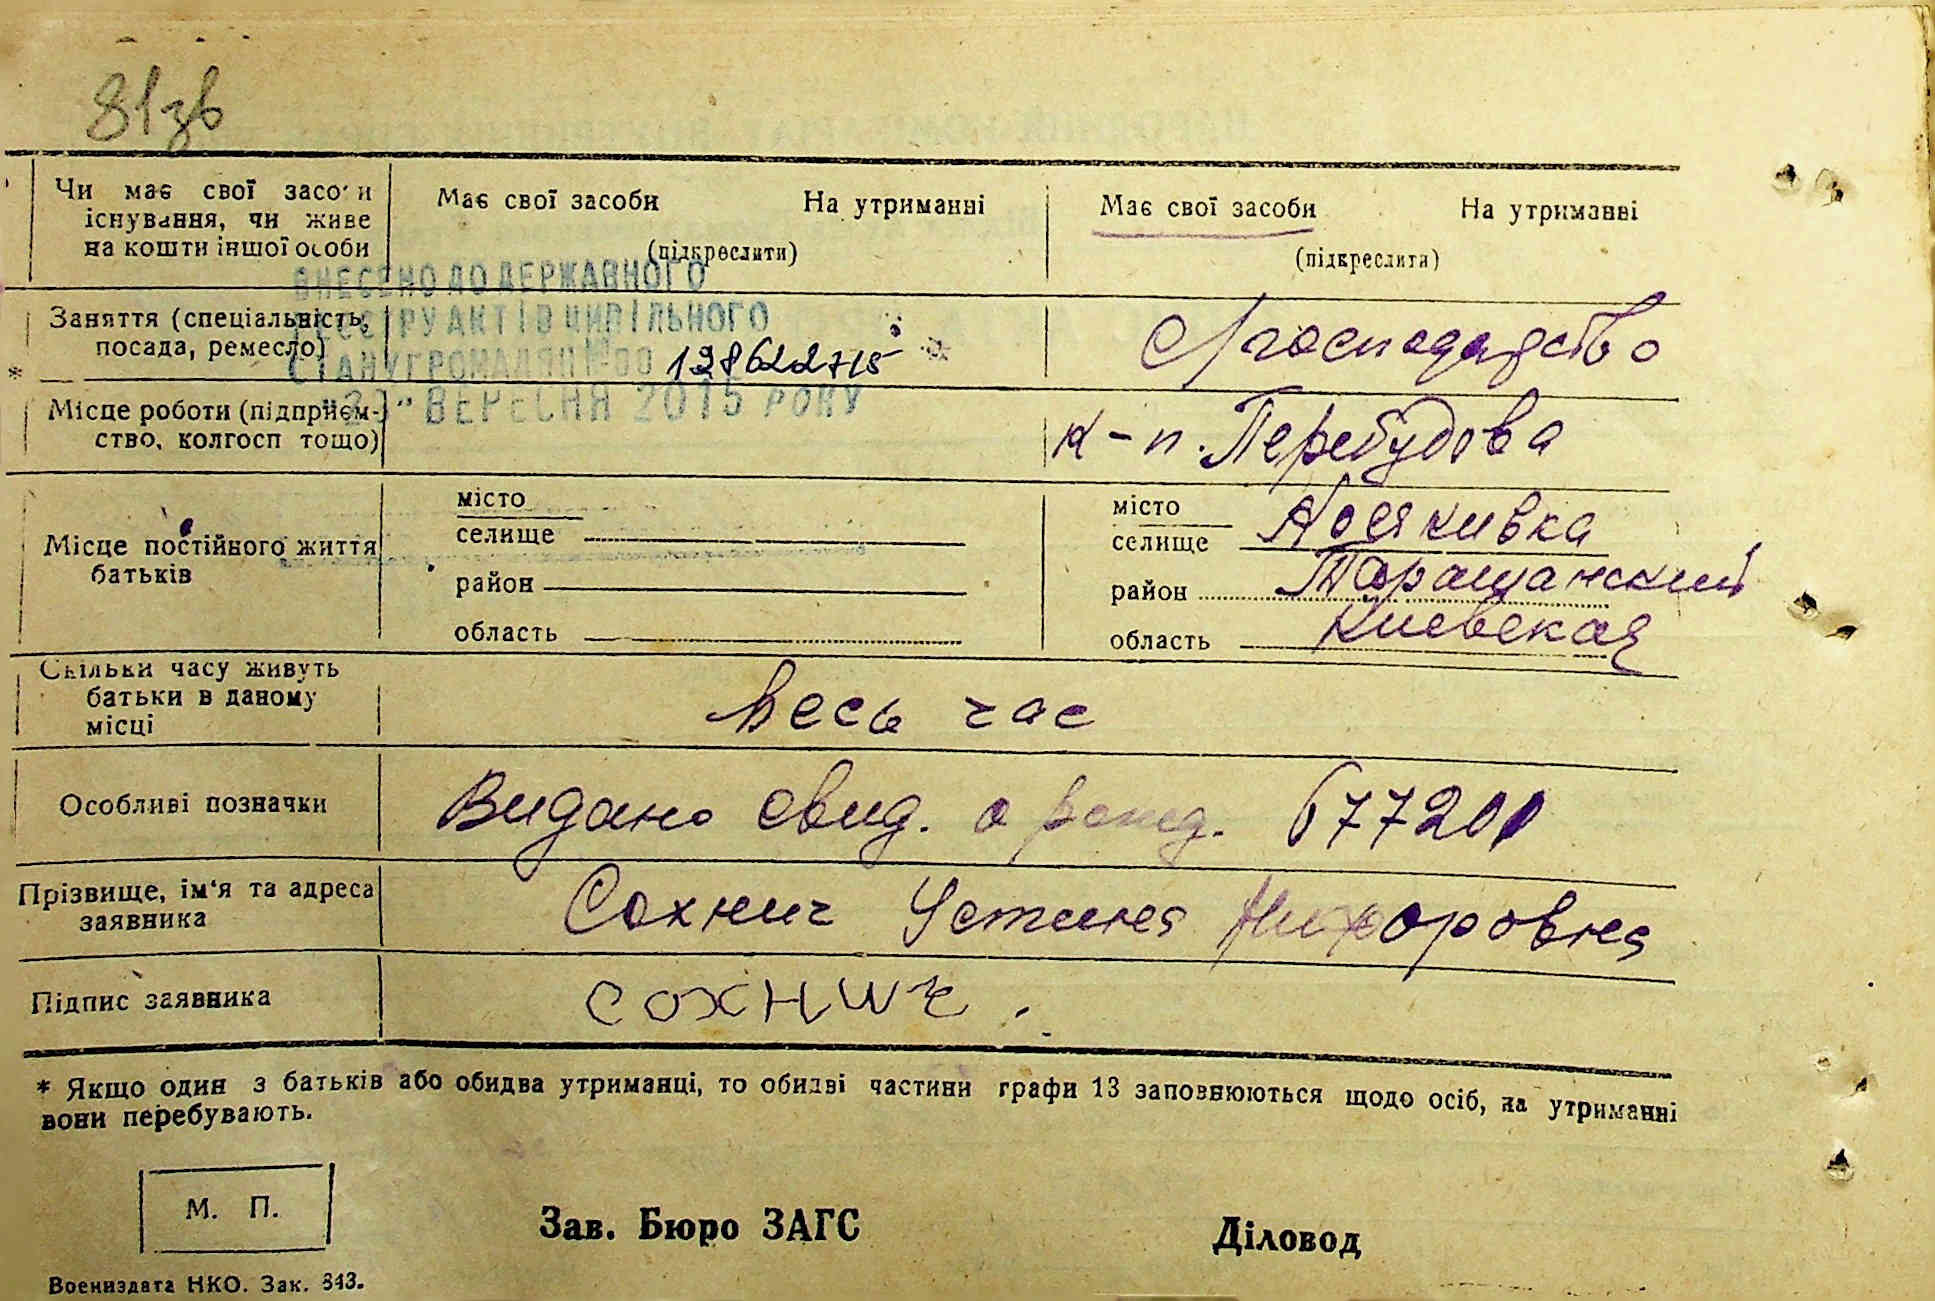 81зв
Чи має свої засоби існування, чи живе на кошти іншої особи
Має свої засоби На утриманні
(підкреслити)
Має свої засоби На утриманні
(підкреслити)
ВНЕСЕНО ДО ДЕРЖАВНОГО
РЕЄСТРУ АКТІВ ЦИВІЛЬНОГО
СТАНУ ГРОМАДЯН №00 128622715
ВЕРЕСНЯ 2015 РОКУ
* Заняття (спеціальність,
посада, ремесло)
С/господарство
Місце роботи (підприєм-
ство, колгосп тощо)
к-п. Перебудова
Місце постійного життя
батьків
місто
селище
район
область
місто
селище Косяківка
район Таращанский
область Киевская
Скільки часу живуть
батьки в даному
місці
Весь час
Особливі позначки
Видано свид. о рожд. 677201
Прізвище, ім'я та адреса
заявника
Сохнич Устина Никифоровна
Підпис заявника
сохнич.
* Якщо один з батьків або обидва утриманці, то обидві частини графи 13 заповнюються щодо осіб, на утриманні
вони перебувають.
М. П.
Зав. Бюро ЗАГС
Діловод
Воениздата НКО. Зак. 343.